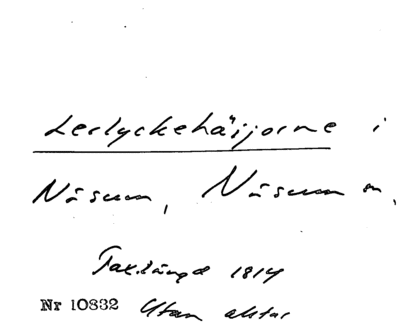 Lerlyckehäijorne i
Näsum, Näsum sn,
Taxlängd 1814
Nr 10832 Utan aktnr